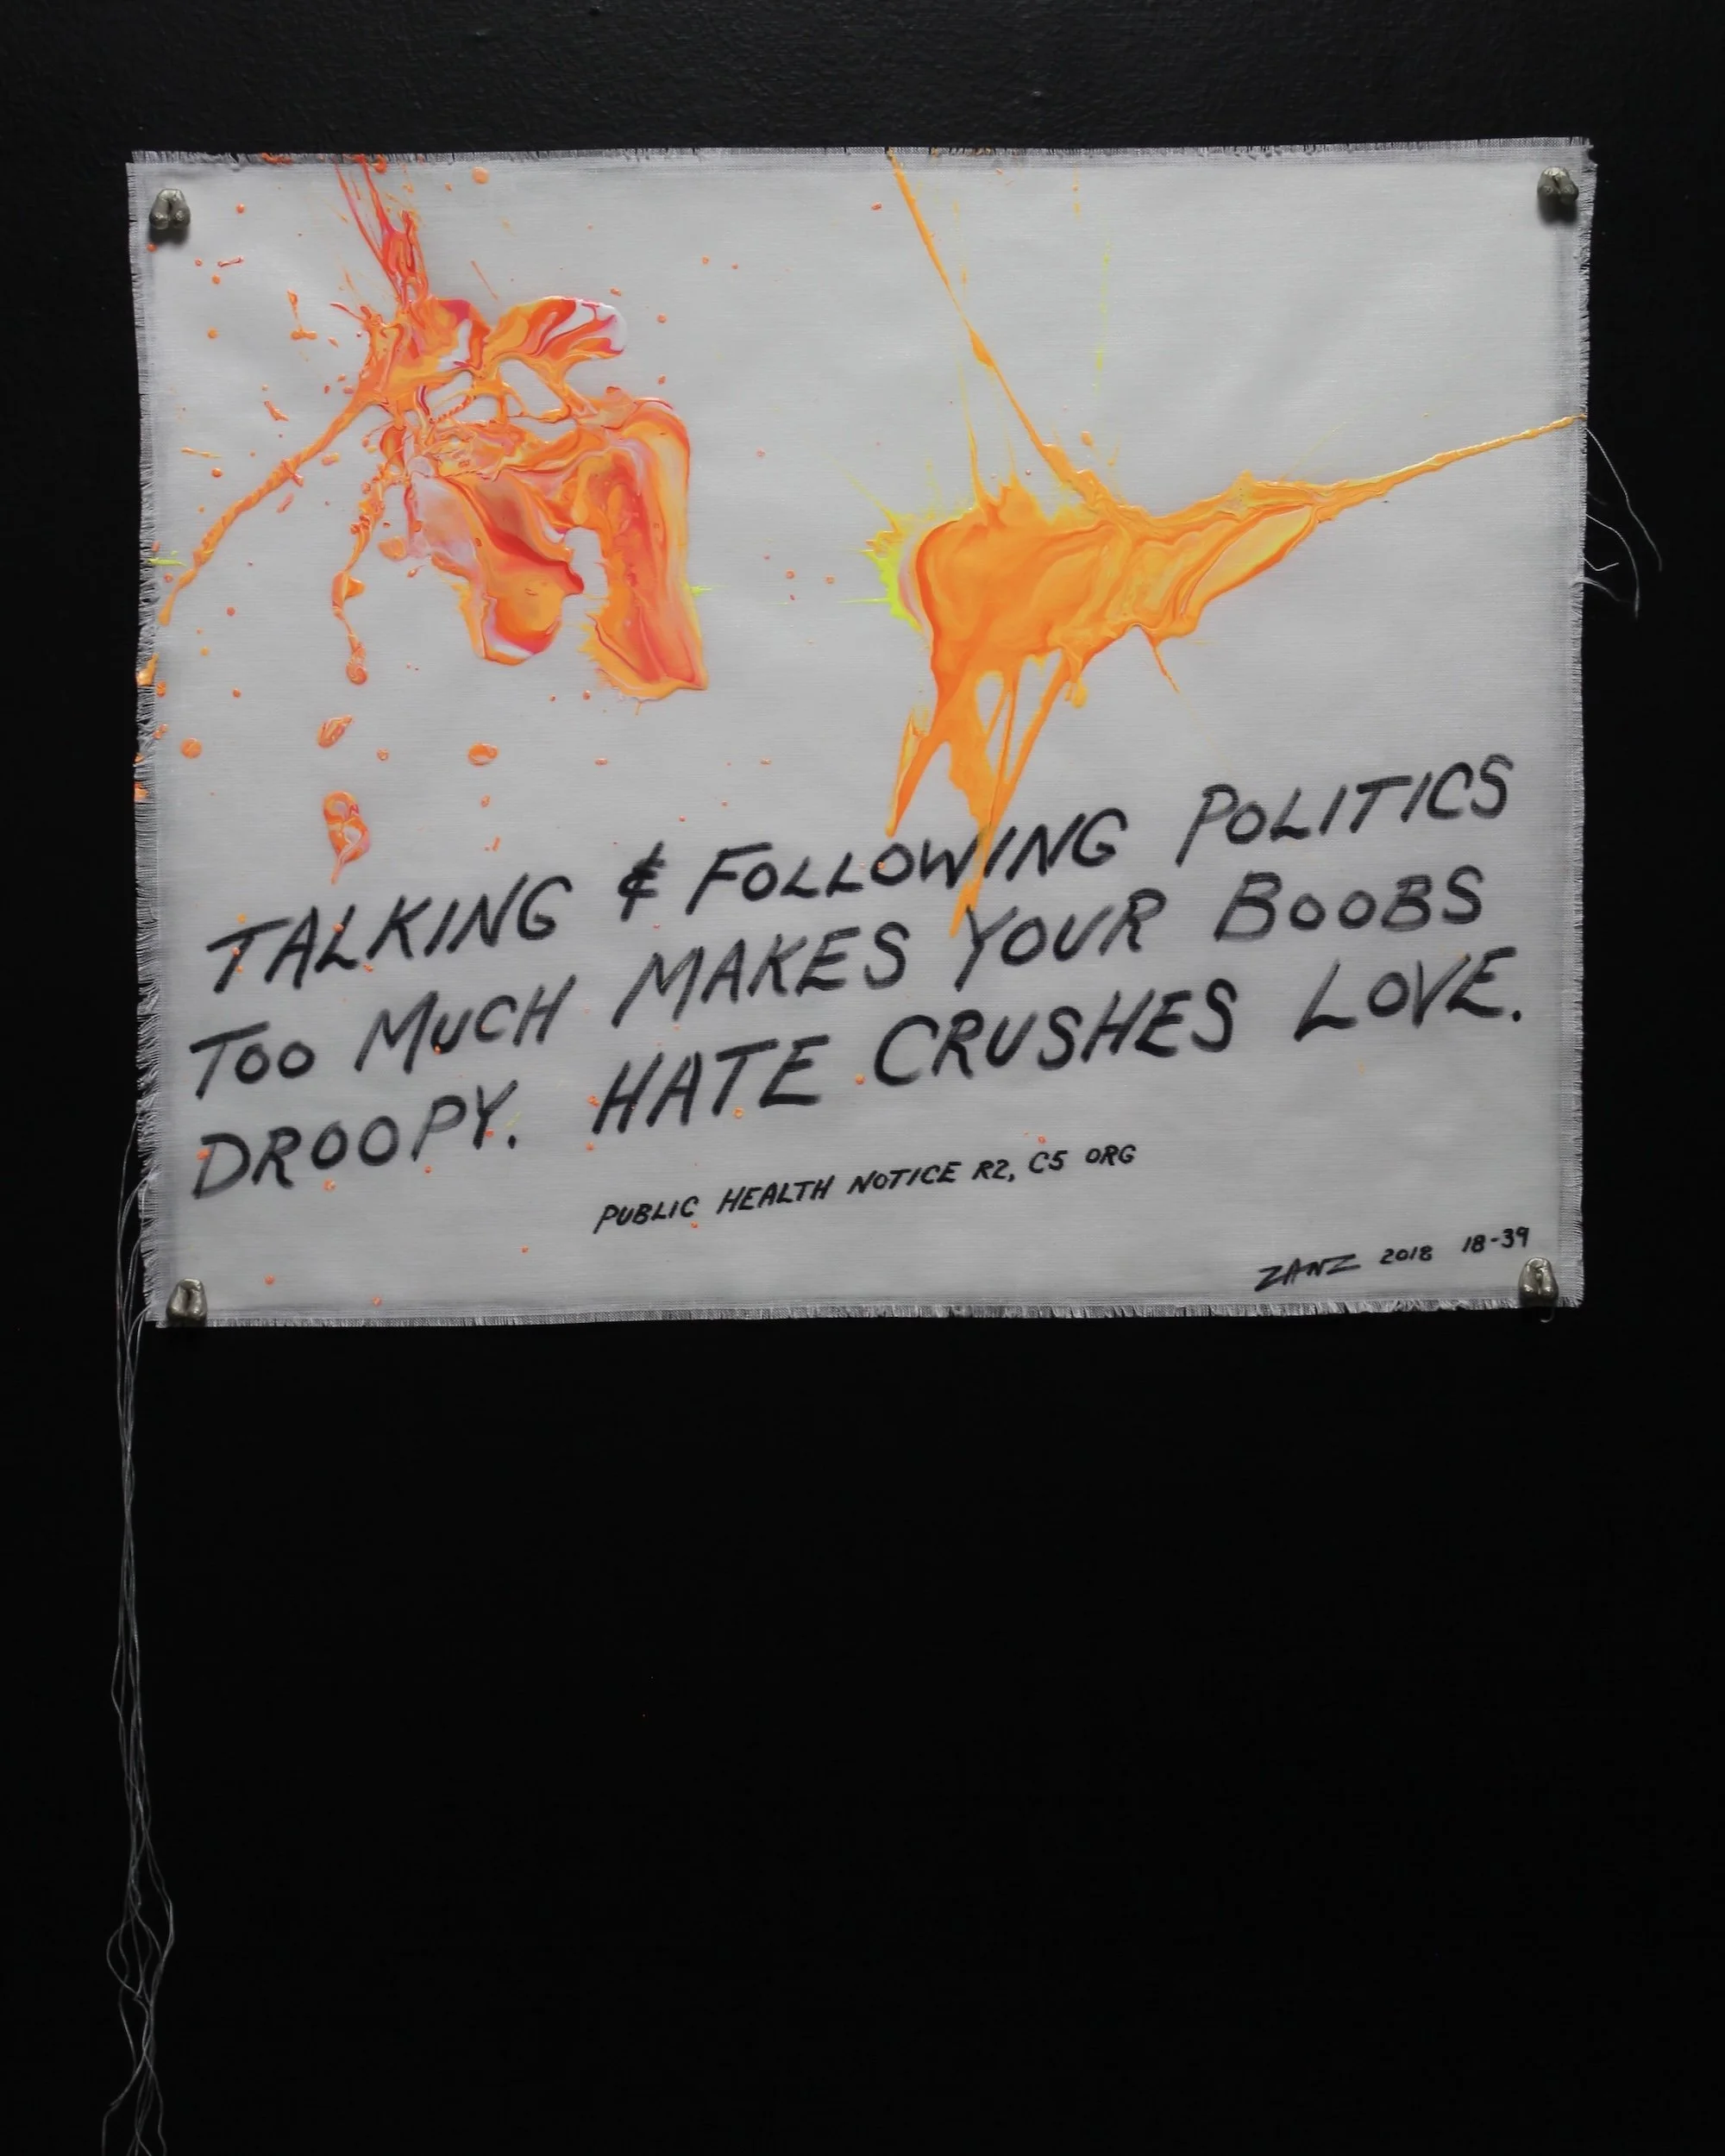 TALKING & FOLLOWING POLITICS
TOO MUCH MAKES YOUR BOOBS
DROOPY. HATE CRUSHES LOVE.
PUBLIC HEALTH NOTICE R2, C5 ORG
ZANZ 2018 18-39